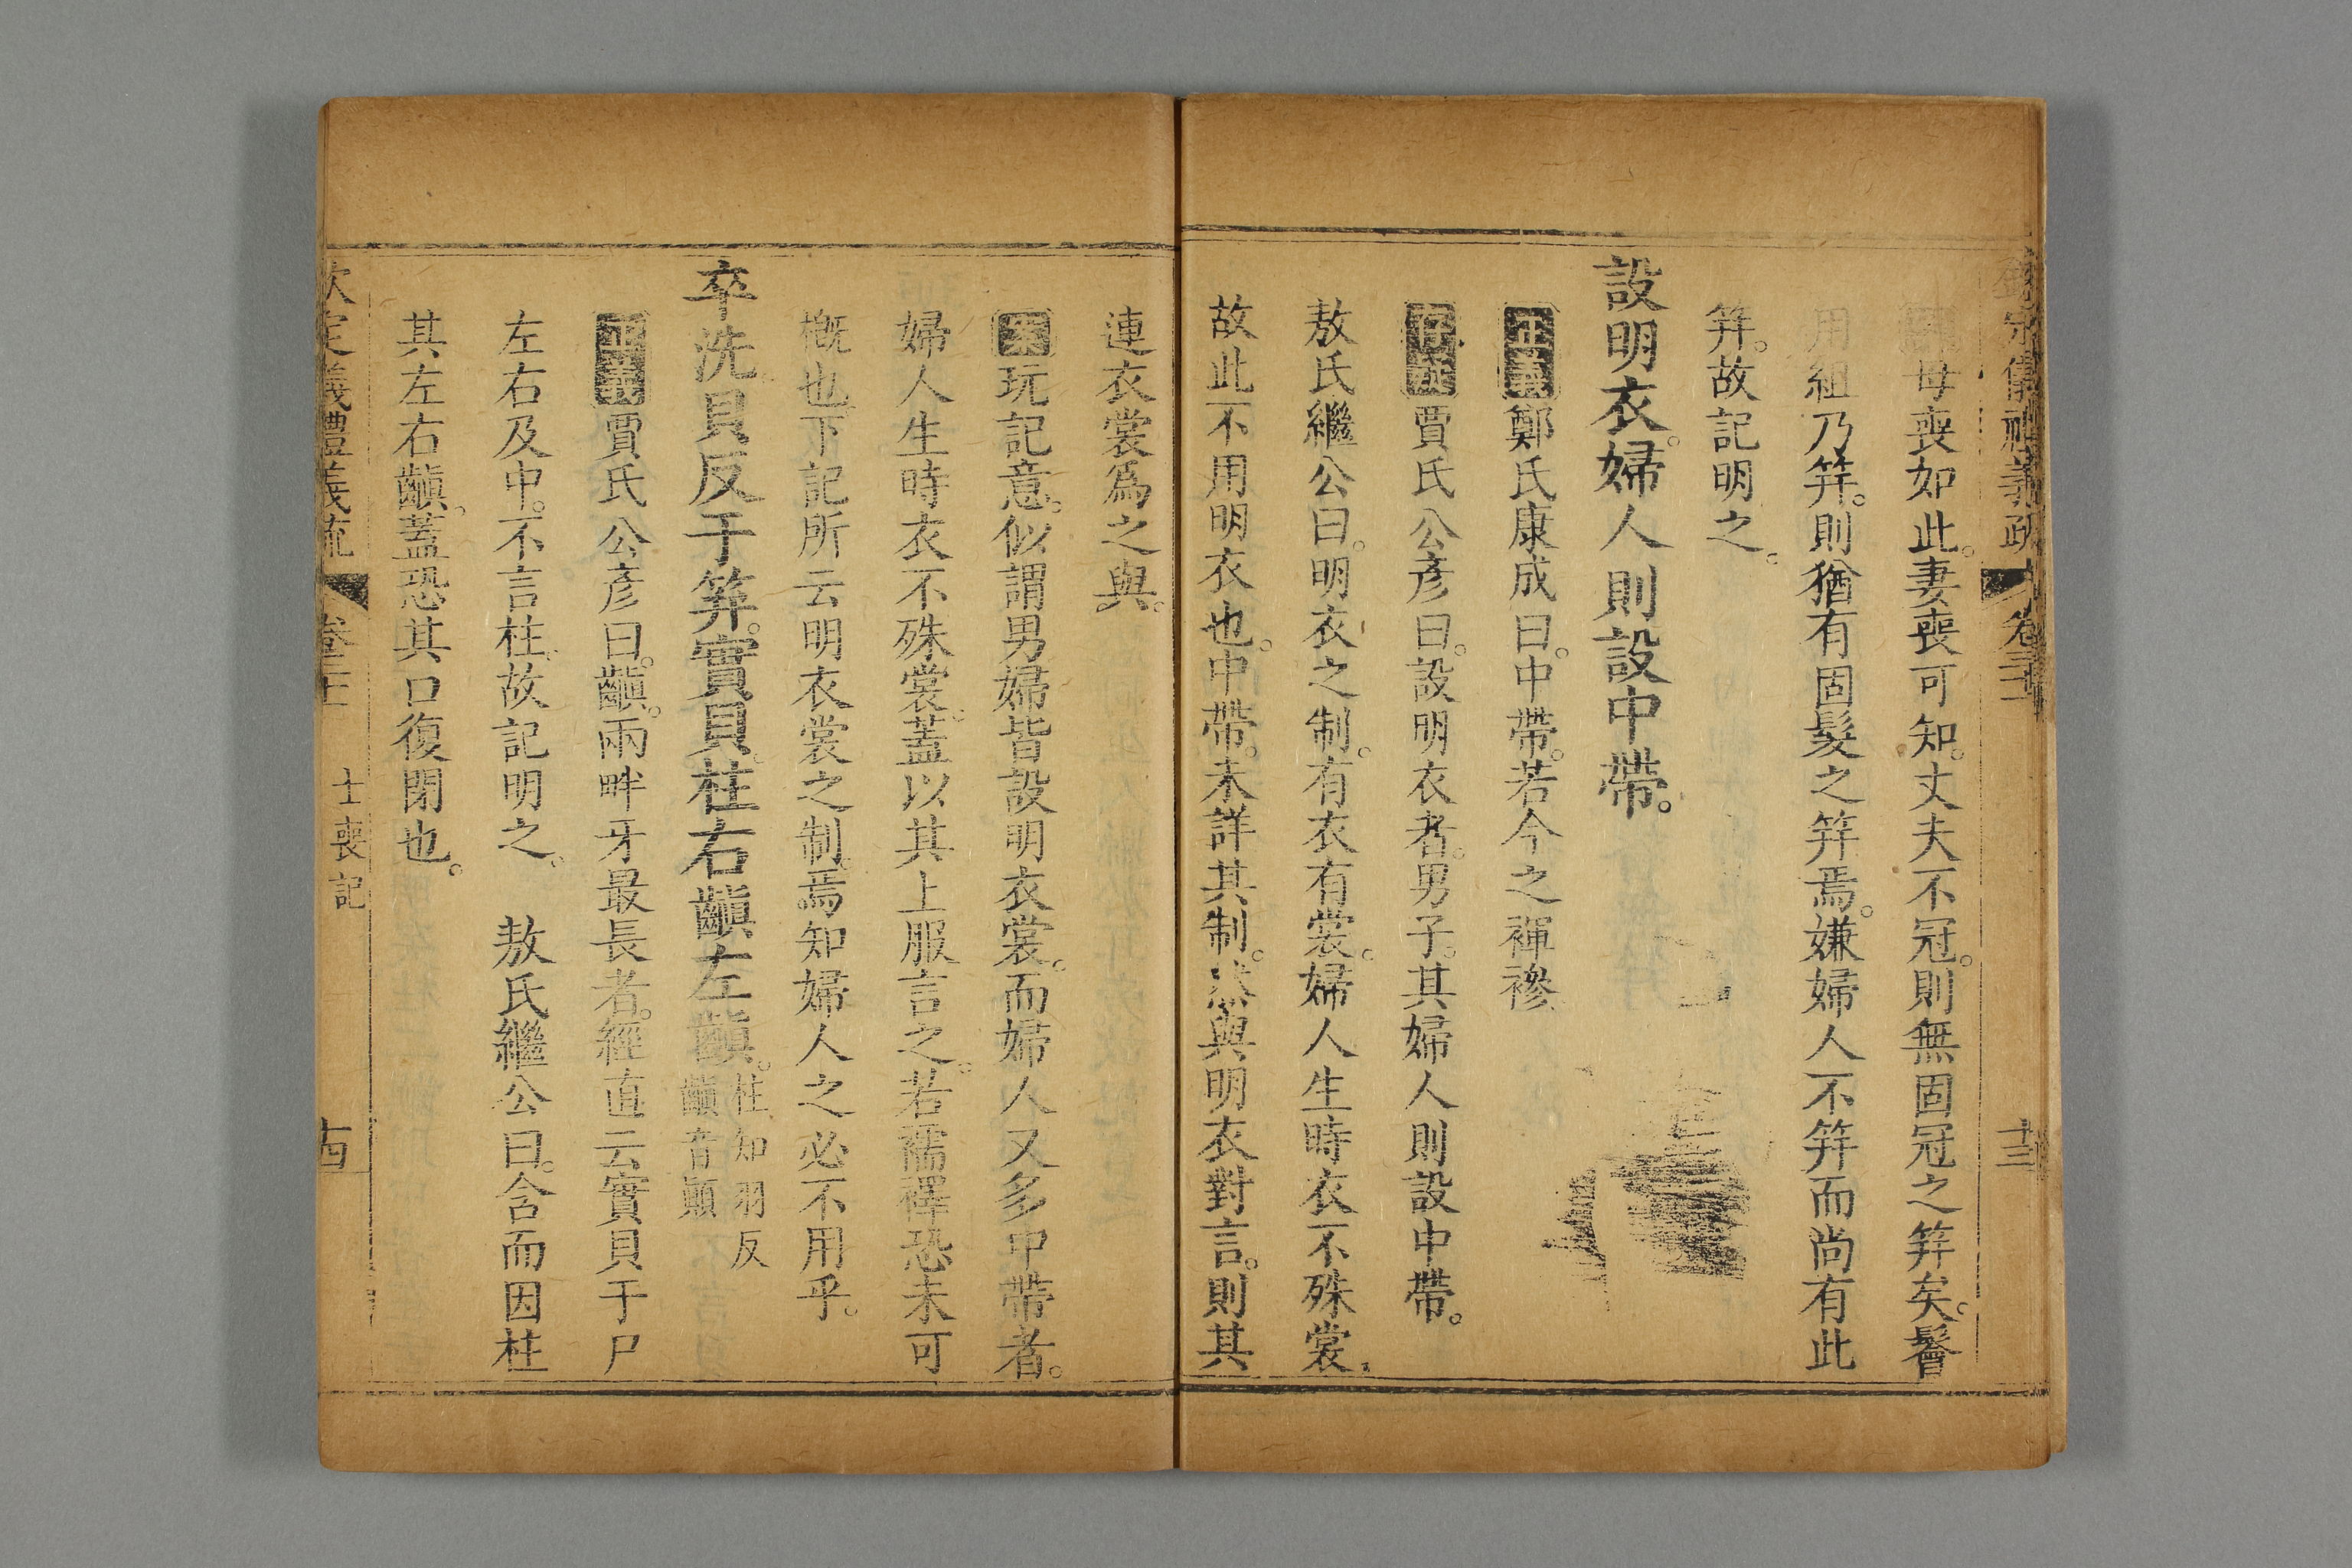 欽定儀禮義疏 卷三十 十三
母喪如此。妻喪可知。丈夫不冠。則無固冠之笄矣。鬠
用組乃笄。則猶有固髮之笄焉。嫌婦人不笄而尚有此
笄。故記明之。
設明衣。婦人則設中帶。
正義鄭氏康成曰。中帶。若今之褌襂
存疑賈氏公彥曰。設明衣者。男子。其婦人則設中帶。
敖氏繼公曰。明衣之制。有衣有裳。婦人生時衣不殊裳。
故此不用明衣也。中帶。未詳其制。然與明衣對言。則其
連衣裳爲之與。
案玩記意。似謂男婦皆設明衣裳。而婦人又多中帶者。
婦人生時衣不殊裳。蓋以其上服言之。若襦襗恐未可
槪也。下記所云明衣裳之制。焉知婦人之必不用乎。
卒洗貝反于笄。實貝。柱右齻左齻。柱知羽反齻音顚
正義賈氏公彥曰。齻。兩畔牙最長者。經直云實貝于尸
左右及中。不言柱。故記明之。 敖氏繼公曰。含而因柱
其左右齻。蓋恐其口復閉也。
欽定儀禮義疏 卷三十 士喪記 十四